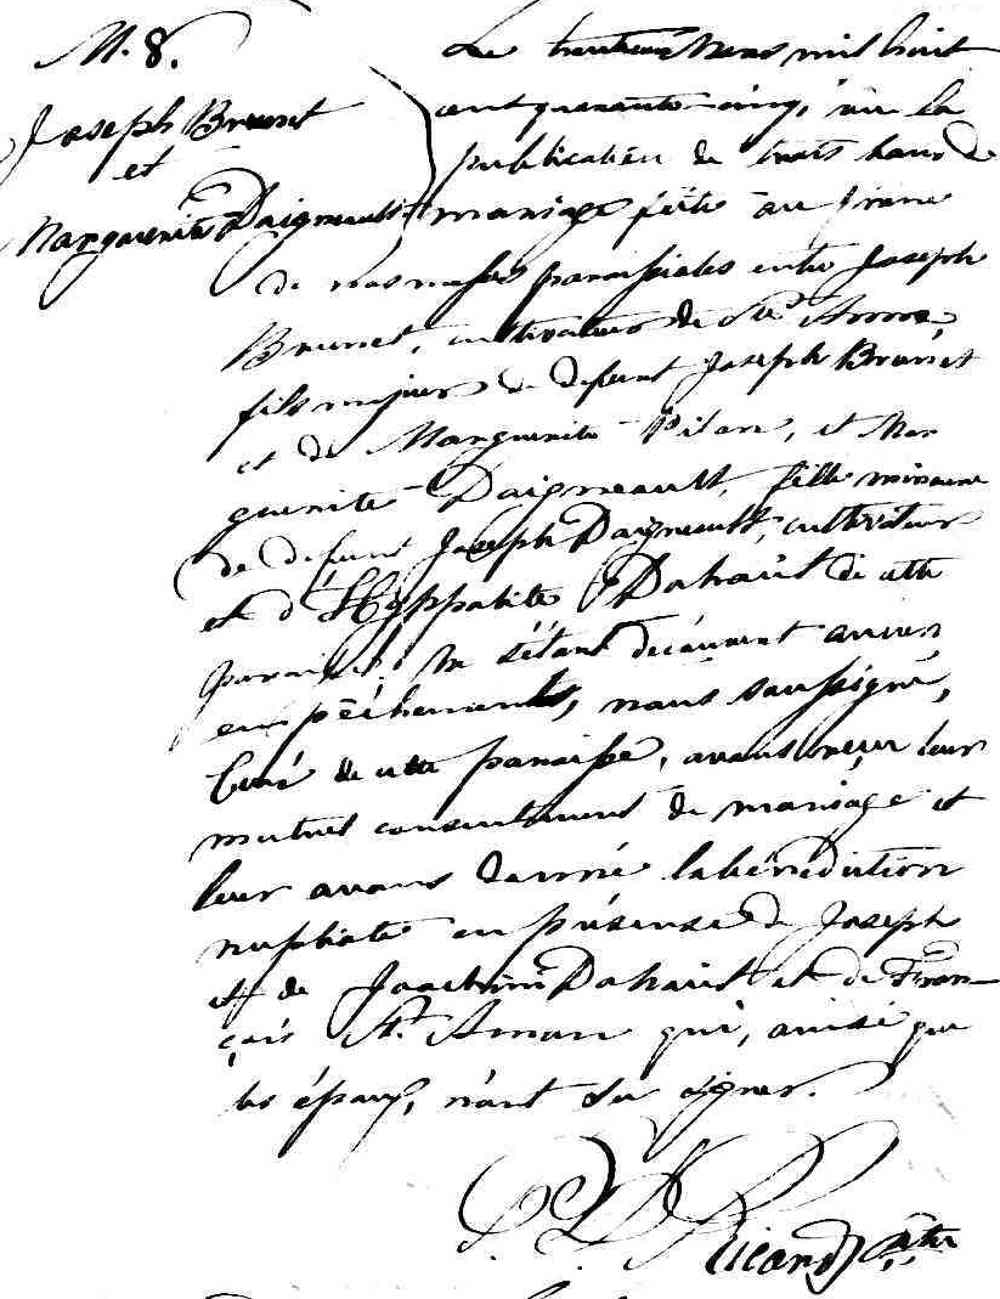 M. 8.
Joseph Brunet
et
Marguerite Daigneault
Le Mars mil huit
cent quarante-cinq, vu la
publication de trois bans de
mariage faite au prone
de nos messes paroissiales entre Joseph
Brunet, cultivateur de Ste Anne,
fils majeur de defunt Joseph Brunet
et de Marguerite Pilon, et Mar
guerite Daigneault, fille mineure
de defunt Joseph Daigneault, cultivateur
et d'Hyppolite Dahault de cette
paroisse. Ne s'étant découvert aucun
empêchement, nous soussigné,
Curé de cette paroisse, avons reçu leur
mutuel consentement de mariage et
leur avons donné la bénédiction
nuptiale en présence de Joseph
et de Joachim Dahault et de Fran-
çois St. Aman qui, ainsi que
les époux, n'ont su signer.
Ricard Ptre